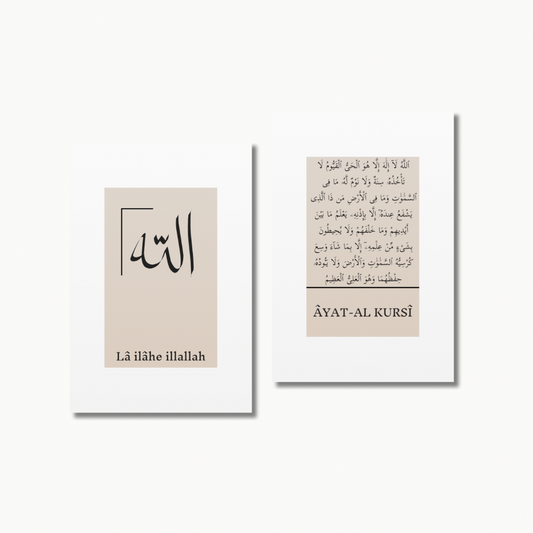 الله
Lâ ilâhe illallah
اَللّٰهُ لَآ اِلٰهَ اِلَّا هُوَ الْحَيُّ الْقَيُّومُ لَا
تَأْخُذُهُ سِنَةٌ وَلَا نَوْمٌ لَهُ مَا فِي
السَّمٰوَاتِ وَمَا فِي الْاَرْضِ مَن ذَا الَّذِي
يَشْفَعُ عِندَهُ اِلَّا بِإِذْنِهِ يَعْلَمُ مَا بَيْنَ
أَيْدِيهِمْ وَمَا خَلْفَهُمْ وَلَا يُحِيطُونَ
بِشَيْءٍ مِّنْ عِلْمِهِ اِلَّا بِمَا شَآءَ وَسِعَ
كُرْسِيُّهُ السَّمٰوَاتِ وَالْاَرْضَ وَلَا يَئُودُهُ
حِفْظُهُمَا وَهُوَ الْعَلِيُّ الْعَظِيمُ
ÂYAT-AL KURSÎ